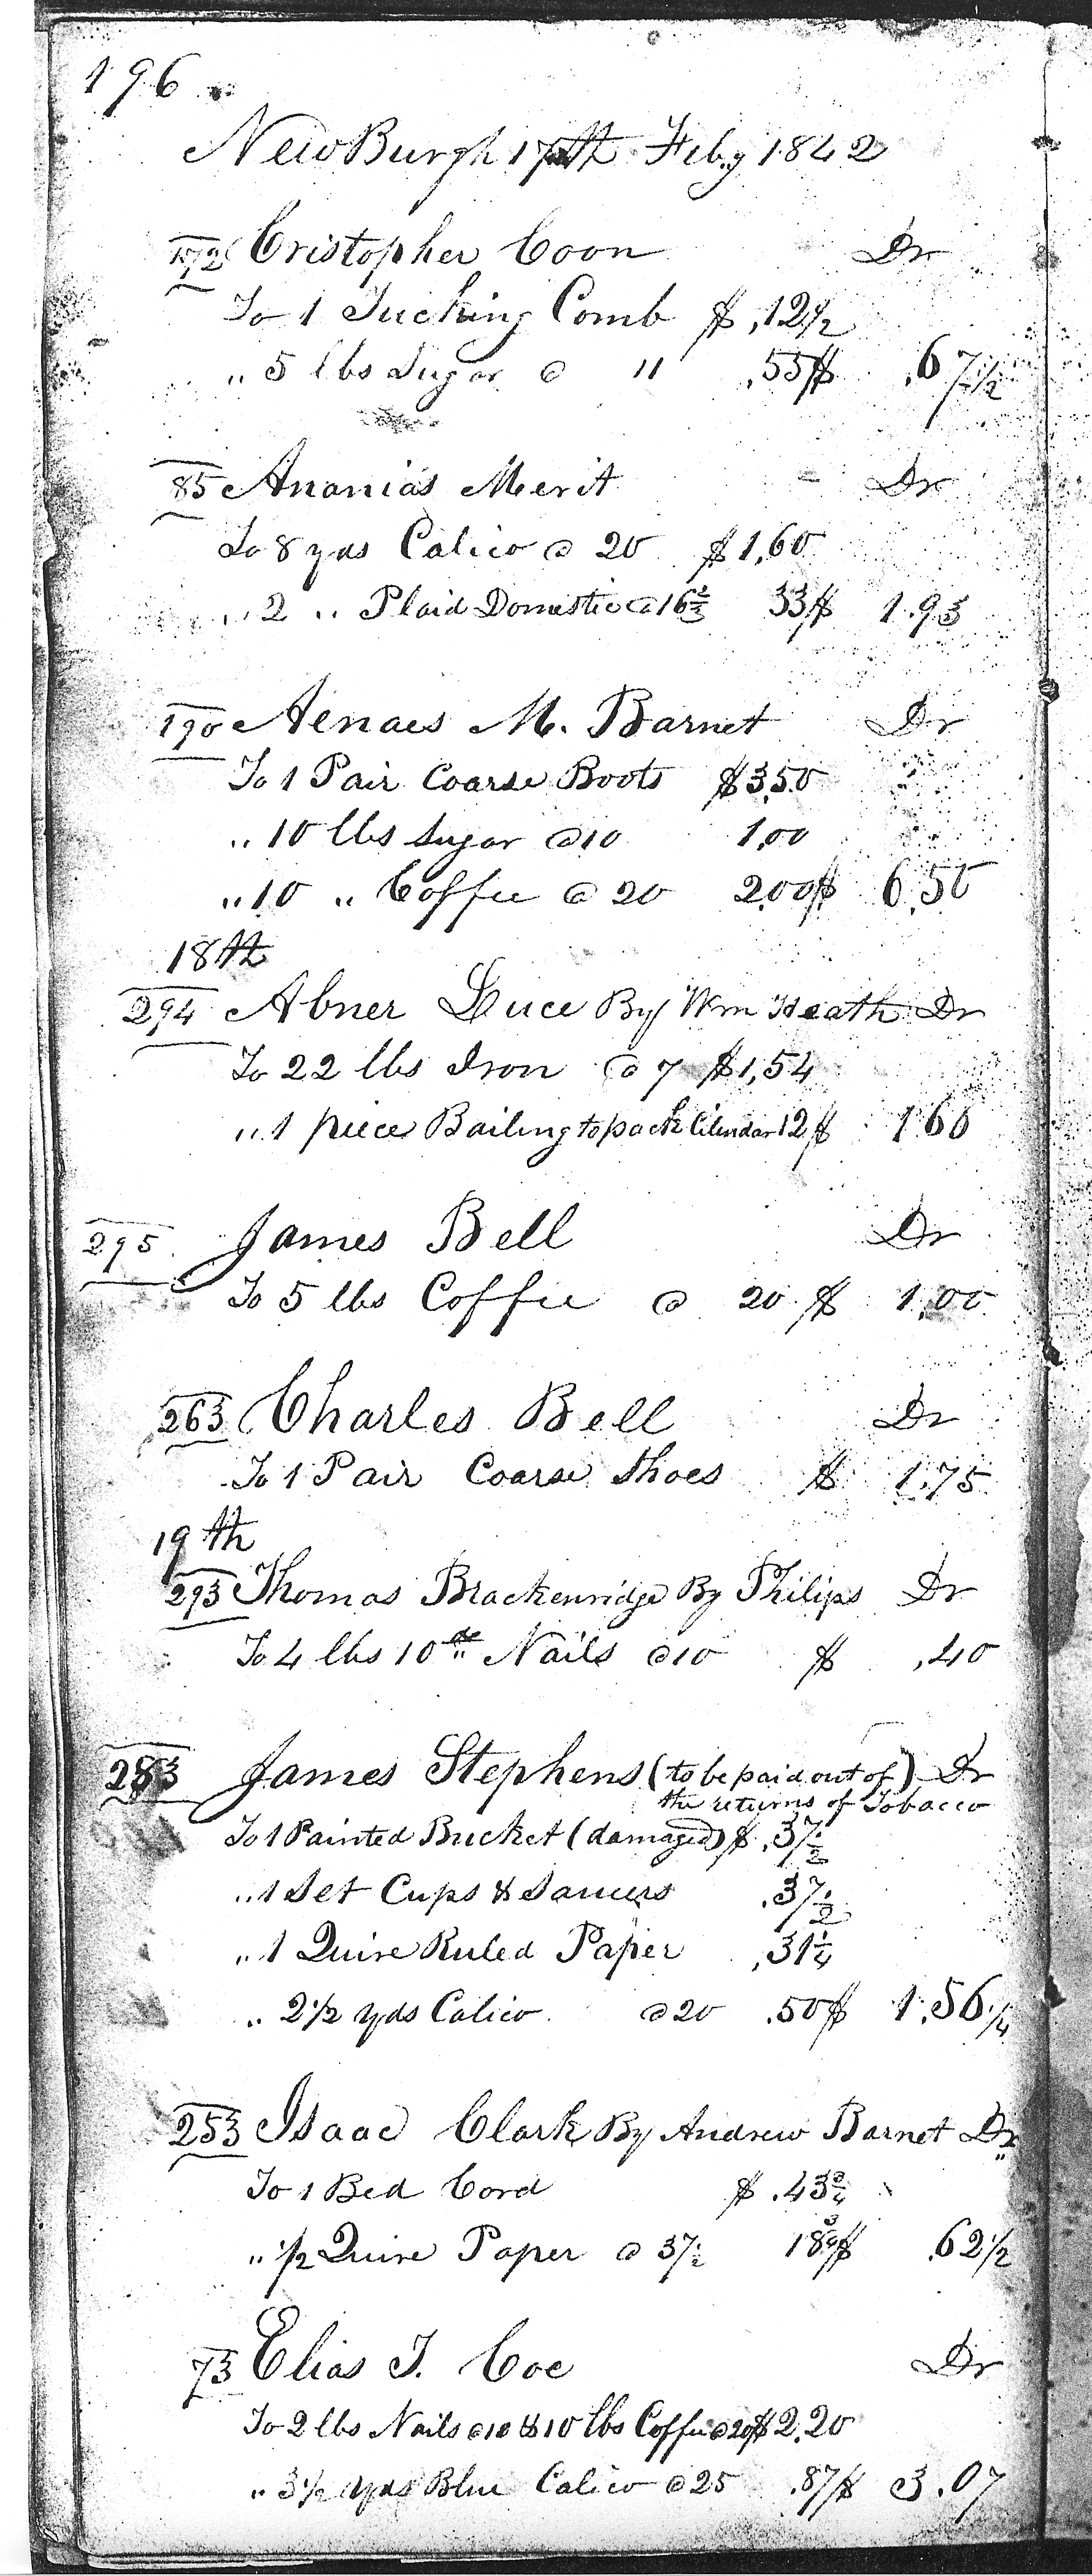 196
NewBurgh 17th Feby 1842
172 Cristopher Coon Dr
To 1 Tucking Comb $ ,12 1/2
" 5 lbs Sugar @ 11 .55$ .67 1/2
85 Ananias Merit Dr
To 8 yds Calico @ 20 $1,60
" 2 " Plaid Domestic @ 16 2/3 33$ 1.93
190 Aenaes M. Barnet Dr
To 1 Pair Coarse Boots $3,50
" 10 lbs Sugar @10 1,00
" 10 " Coffee @ 20 2,00$ 6,50
18th
294 Abner Luce By Wm Heath Dr
To 22 lbs Iron @ 7 $1,54
" 1 piece Bailing to pack Cilindar 12$ 166
295 James Bell Dr
To 5 lbs Coffee @ 20 $ 1,00
263 Charles Bell Dr
To 1 Pair Coarse Shoes $ 1.75
19th
293 Thomas Brackenridge By Philips Dr
To 4 lbs 10de Nails @10 $ ,40
283 James Stephens (to be paid out of) Dr
the returns of Tobacco
To 1 Painted Bucket (damaged) $ .37 1/2
" 1 Set Cups & Saucers .37 1/2
" 1 Quire Ruled Paper ,31 1/4
" 2 1/2 yds Calico @20 .50$ 1.56 1/4
253 Isaac Clark By Andrew Barnet Dr
To 1 Bed Cord $ .43 3/4
" 1/2 Quire Paper @ 37 1/2 18 3/4$ .62 1/2
73 Elias J. Coe Dr
To 2 lbs Nails @10 & 10 lbs Coffee @20$ 2.20
" 3 1/2 yds Blue Calico @ 25 .87$ 3.07